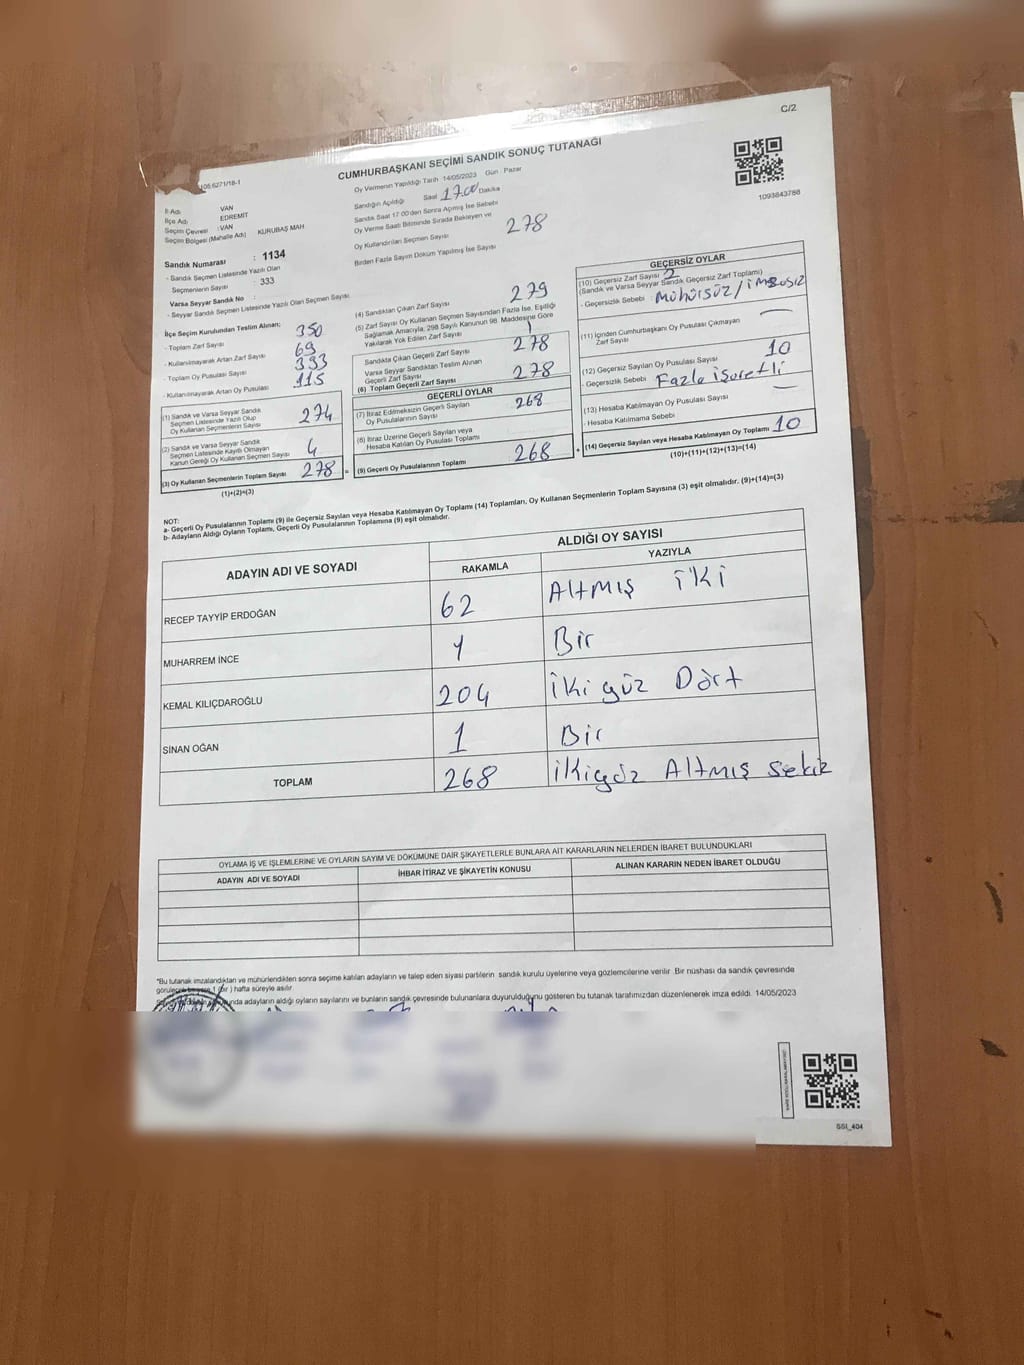 C/2
106:6271/18-1
CUMHURBAŞKANI SEÇİMİ SANDIK SONUÇ TUTANAĞI
Oy Vermenin Yapıldığı Tarih 14/05/2023 Gün : Pazar
1093843786
İl Adı VAN
İlçe Adı EDREMİT
Seçim Çevresi : VAN
Seçim Bölgesi (Mahalle Adı) KURUBAŞ MAH
Sandığın Açıldığı Saat 17.00 Dakika
Sandık Saat 17:00'den Sonra Açılmış İse Sebebi
Oy Verme Saati Bitiminde Sırada Bekleyen ve
Oy Kullandırılan Seçmen Sayısı 278
Birden Fazla Sayım Döküm Yapılmış İse Sayısı
Sandık Numarası : 1134
- Sandık Seçmen Listesinde Yazılı Olan
Seçmenlerin Sayısı : 333
Varsa Seyyar Sandık No :
- Seyyar Sandık Seçmen Listesinde Yazılı Olan Seçmen Sayısı
İlçe Seçim Kurulundan Teslim Alınan;
- Toplam Zarf Sayısı 350
- Kullanılmayarak Artan Zarf Sayısı 69
- Toplam Oy Pusulası Sayısı 393
- Kullanılmayarak Artan Oy Pusulası 115
(1) Sandık ve Varsa Seyyar Sandık
Seçmen Listesinde Yazılı Olup
Oy Kullanan Seçmenlerin Sayısı 274
(2) Sandık ve Varsa Seyyar Sandık
Seçmen Listesinde Kayıtlı Olmayan
Kanun Gereği Oy Kullanan Seçmen Sayısı 4
(3) Oy Kullanan Seçmenlerin Toplam Sayısı 278 =
(1)+(2)=(3)
(4) Sandıktan Çıkan Zarf Sayısı 279
(5) Zarf Sayısı Oy Kullanan Seçmen Sayısından Fazla İse, Eşitliği
Sağlamak Amacıyla, 298 Sayılı Kanunun 98. Maddesine Göre
Yakılarak Yok Edilen Zarf Sayısı 1
Sandıkta Çıkan Geçerli Zarf Sayısı 278
Varsa Seyyar Sandıktan Teslim Alınan
Geçerli Zarf Sayısı
(6) Toplam Geçerli Zarf Sayısı 278
GEÇERLİ OYLAR
(7) İtiraz Edilmeksizin Geçerli Sayılan
Oy Pusulalarının Sayısı 268
(8) İtiraz Üzerine Geçerli Sayılan veya
Hesaba Katılan Oy Pusulası Toplamı
(9) Geçerli Oy Pusulalarının Toplamı 268 +
GEÇERSİZ OYLAR
(10) Geçersiz Zarf Sayısı 2
(Sandık ve Varsa Seyyar Sandık Geçersiz Zarf Toplamı)
- Geçersizlik Sebebi Mühürsüz / imzasız
(11) İçinden Cumhurbaşkanı Oy Pusulası Çıkmayan
Zarf Sayısı —
(12) Geçersiz Sayılan Oy Pusulası Sayısı 10
- Geçersizlik Sebebi Fazla işaretli
(13) Hesaba Katılmayan Oy Pusulası Sayısı —
- Hesaba Katılmama Sebebi
(14) Geçersiz Sayılan veya Hesaba Katılmayan Oy Toplamı 10
(10)+(11)+(12)+(13)=(14)
NOT:
a- Geçerli Oy Pusulalarının Toplamı (9) ile Geçersiz Sayılan veya Hesaba Katılmayan Oy Toplamı (14) Toplamları, Oy Kullanan Seçmenlerin Toplam Sayısına (3) eşit olmalıdır. (9)+(14)=(3)
b- Adayların Aldığı Oyların Toplamı, Geçerli Oy Pusulalarının Toplamına (9) eşit olmalıdır.
ADAYIN ADI VE SOYADI
ALDIĞI OY SAYISI
RAKAMLA YAZIYLA
RECEP TAYYİP ERDOĞAN 62 Altmış iki
MUHARREM İNCE 1 Bir
KEMAL KILIÇDAROĞLU 204 iki yüz Dört
SİNAN OĞAN 1 Bir
TOPLAM 268 ikiyüz Altmış sekiz
OYLAMA İŞ VE İŞLEMLERİNE VE OYLARIN SAYIM VE DÖKÜMÜNE DAİR ŞİKAYETLERLE BUNLARA AİT KARARLARIN NELERDEN İBARET BULUNDUKLARI
ADAYIN ADI VE SOYADI İHBAR İTİRAZ VE ŞİKAYETİN KONUSU ALINAN KARARIN NEDEN İBARET OLDUĞU
*Bu tutanak imzalandıktan ve mühürlendikten sonra seçime katılan adayların ve talep eden siyasi partilerin sandık kurulu üyelerine veya gözlemcilerine verilir. Bir nüshası da sandık çevresinde
görülecek bir yere 1 (bir) hafta süreyle asılır.
adayların aldığı oyların sayılarını ve bunların sandık çevresinde bulunanlara duyurulduğunu gösteren bu tutanak tarafımızdan düzenlenerek imza edildi. 14/05/2023
SSI_404